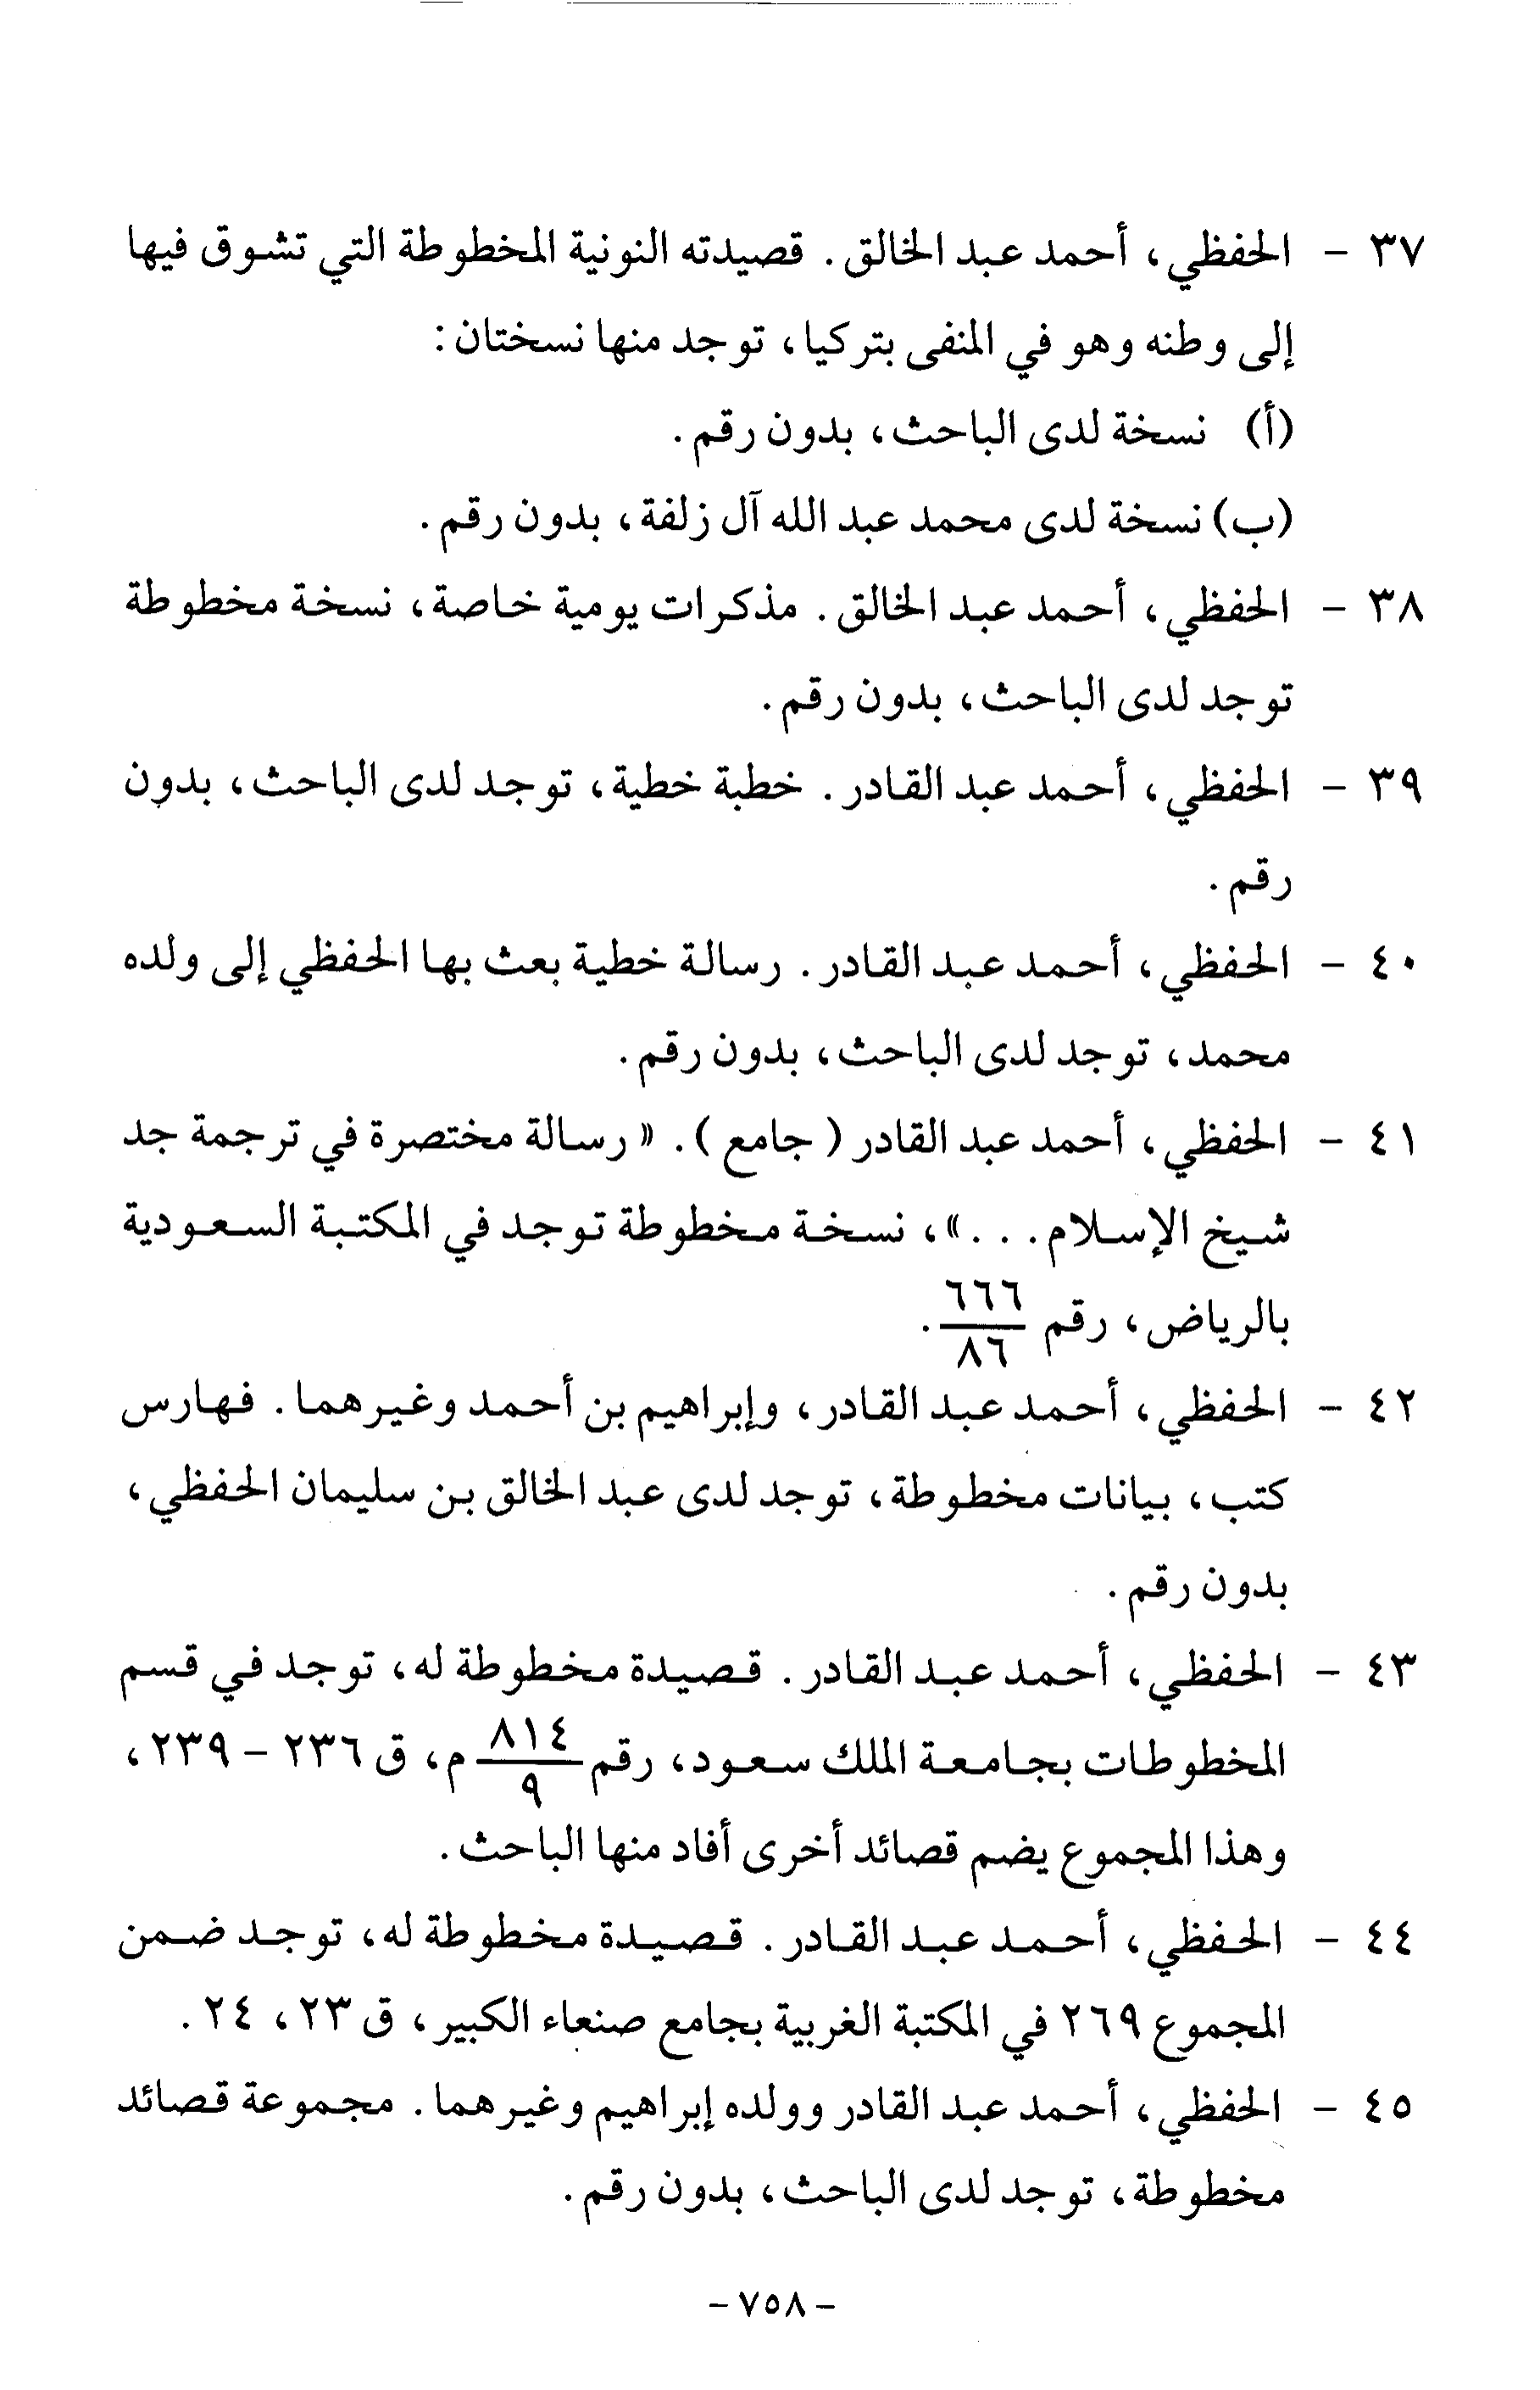 ٣٧ - الحفظي، أحمد عبد الخالق. قصيدته النونية المخطوطة التي تشوق فيها
إلى وطنه وهو في المنفى بتركيا، توجد منها نسختان:
(أ) نسخة لدى الباحث، بدون رقم.
(ب) نسخة لدى محمد عبد الله آل زلفة، بدون رقم.
٣٨ - الحفظي، أحمد عبد الخالق. مذكرات يومية خاصة، نسخة مخطوطة
توجد لدى الباحث، بدون رقم.
٣٩ - الحفظي، أحمد عبد القادر. خطبة خطية، توجد لدى الباحث، بدون
رقم.
٤٠ - الحفظي، أحمد عبد القادر. رسالة خطية بعث بها الحفظي إلى ولده
محمد، توجد لدى الباحث، بدون رقم.
٤١ - الحفظي، أحمد عبد القادر (جامع). «رسالة مختصرة في ترجمة جد
شيخ الإسلام...»، نسخة مخطوطة توجد في المكتبة السعودية
بالرياض، رقم ٦٦٦/٨٦.
٤٢ - الحفظي، أحمد عبد القادر، وإبراهيم بن أحمد وغيرهما. فهارس
كتب، بيانات مخطوطة، توجد لدى عبد الخالق بن سليمان الحفظي،
بدون رقم.
٤٣ - الحفظي، أحمد عبد القادر. قصيدة مخطوطة له، توجد في قسم
المخطوطات بجامعة الملك سعود، رقم ٨١٤/٩ م، ق ٢٣٦ - ٢٣٩،
وهذا المجموع يضم قصائد أخرى أفاد منها الباحث.
٤٤ - الحفظي، أحمد عبد القادر. قصيدة مخطوطة له، توجد ضمن
المجموع ٢٦٩ في المكتبة الغربية بجامع صنعاء الكبير، ق ٢٣، ٢٤.
٤٥ - الحفظي، أحمد عبد القادر وولده إبراهيم وغيرهما. مجموعة قصائد
مخطوطة، توجد لدى الباحث، بدون رقم.
- ٧٥٨ -